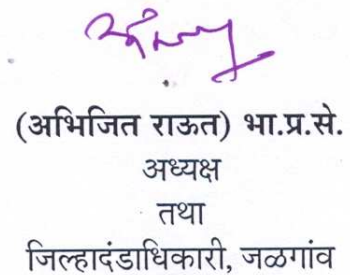 (अभिजित राऊत) भा.प्र.से.
अध्यक्ष
तथा
जिल्हादंडाधिकारी, जळगांव